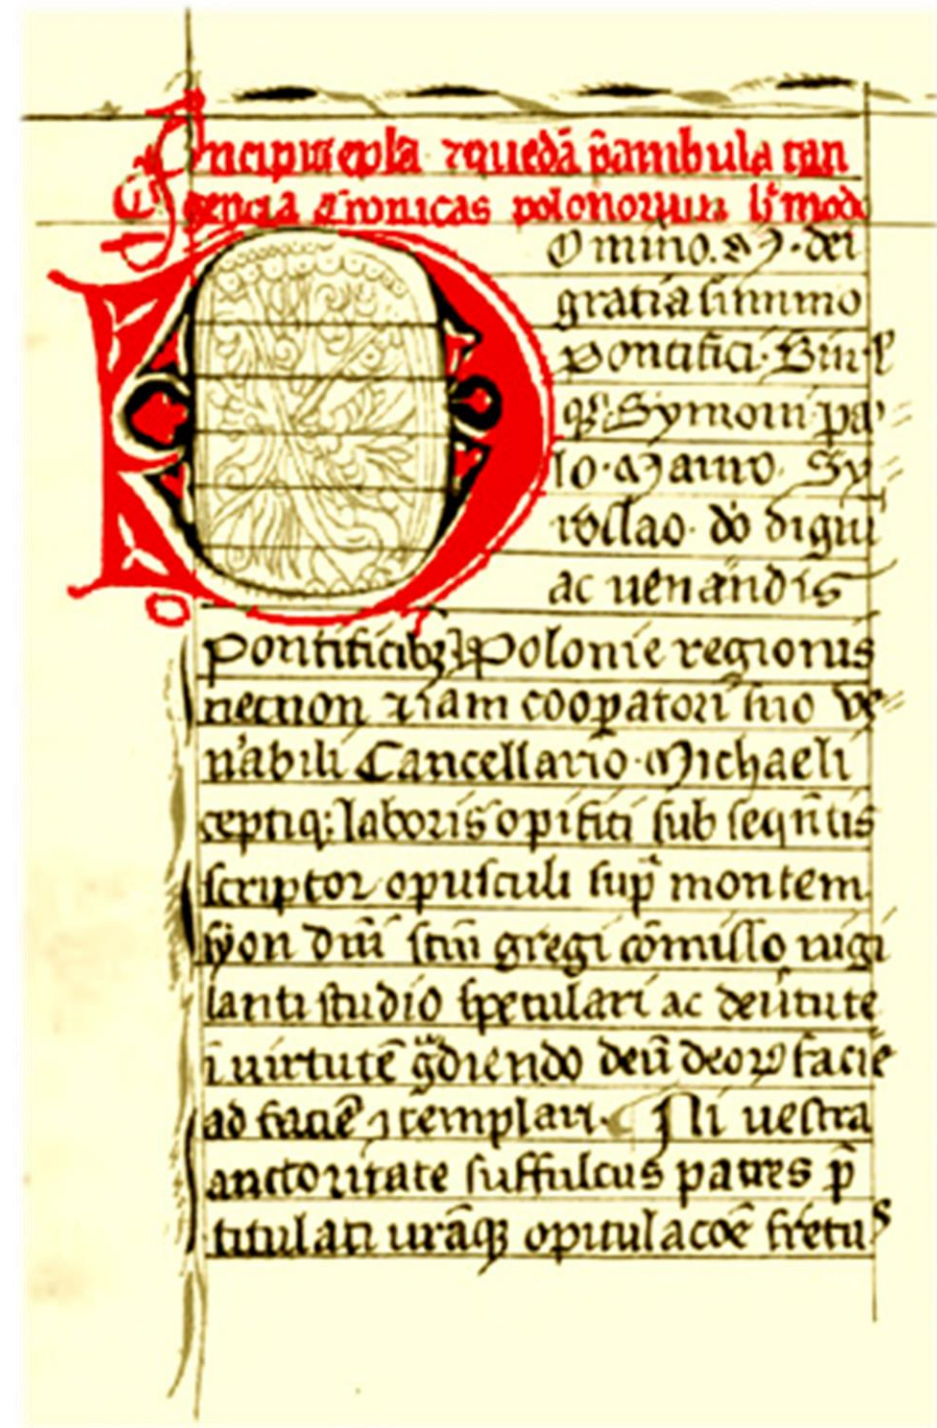 Incipit epła ⁊ quedā p̄ambula tan
gencia Cronicas polonorum
Domino. M. dei
gratia summo
pontifici. Sim̄l
qꝫ. Symoni pa
lo. Mauro. Sy
roslao. do digni
ac uen̄andis
pontificibꝫ Polonie regionis
necnon ⁊iam coop̱atori suo ve
n̄abili Cancellario. Michaeli
ceptiqꝫ laboris opifici sub seqn̄tis
scriptor opusculi sup̄ montem
syon dn̄i scm̄ gregi cōmisso uigi
lanti studio speculari ac de ūtute
ī uirtutē gͣdiendo deū deoꝝ facie
ad faciē templari. Ni uestra
auctoritate suffultus patres p̄
titulati ur̄aqꝫ opitulacōe fretus